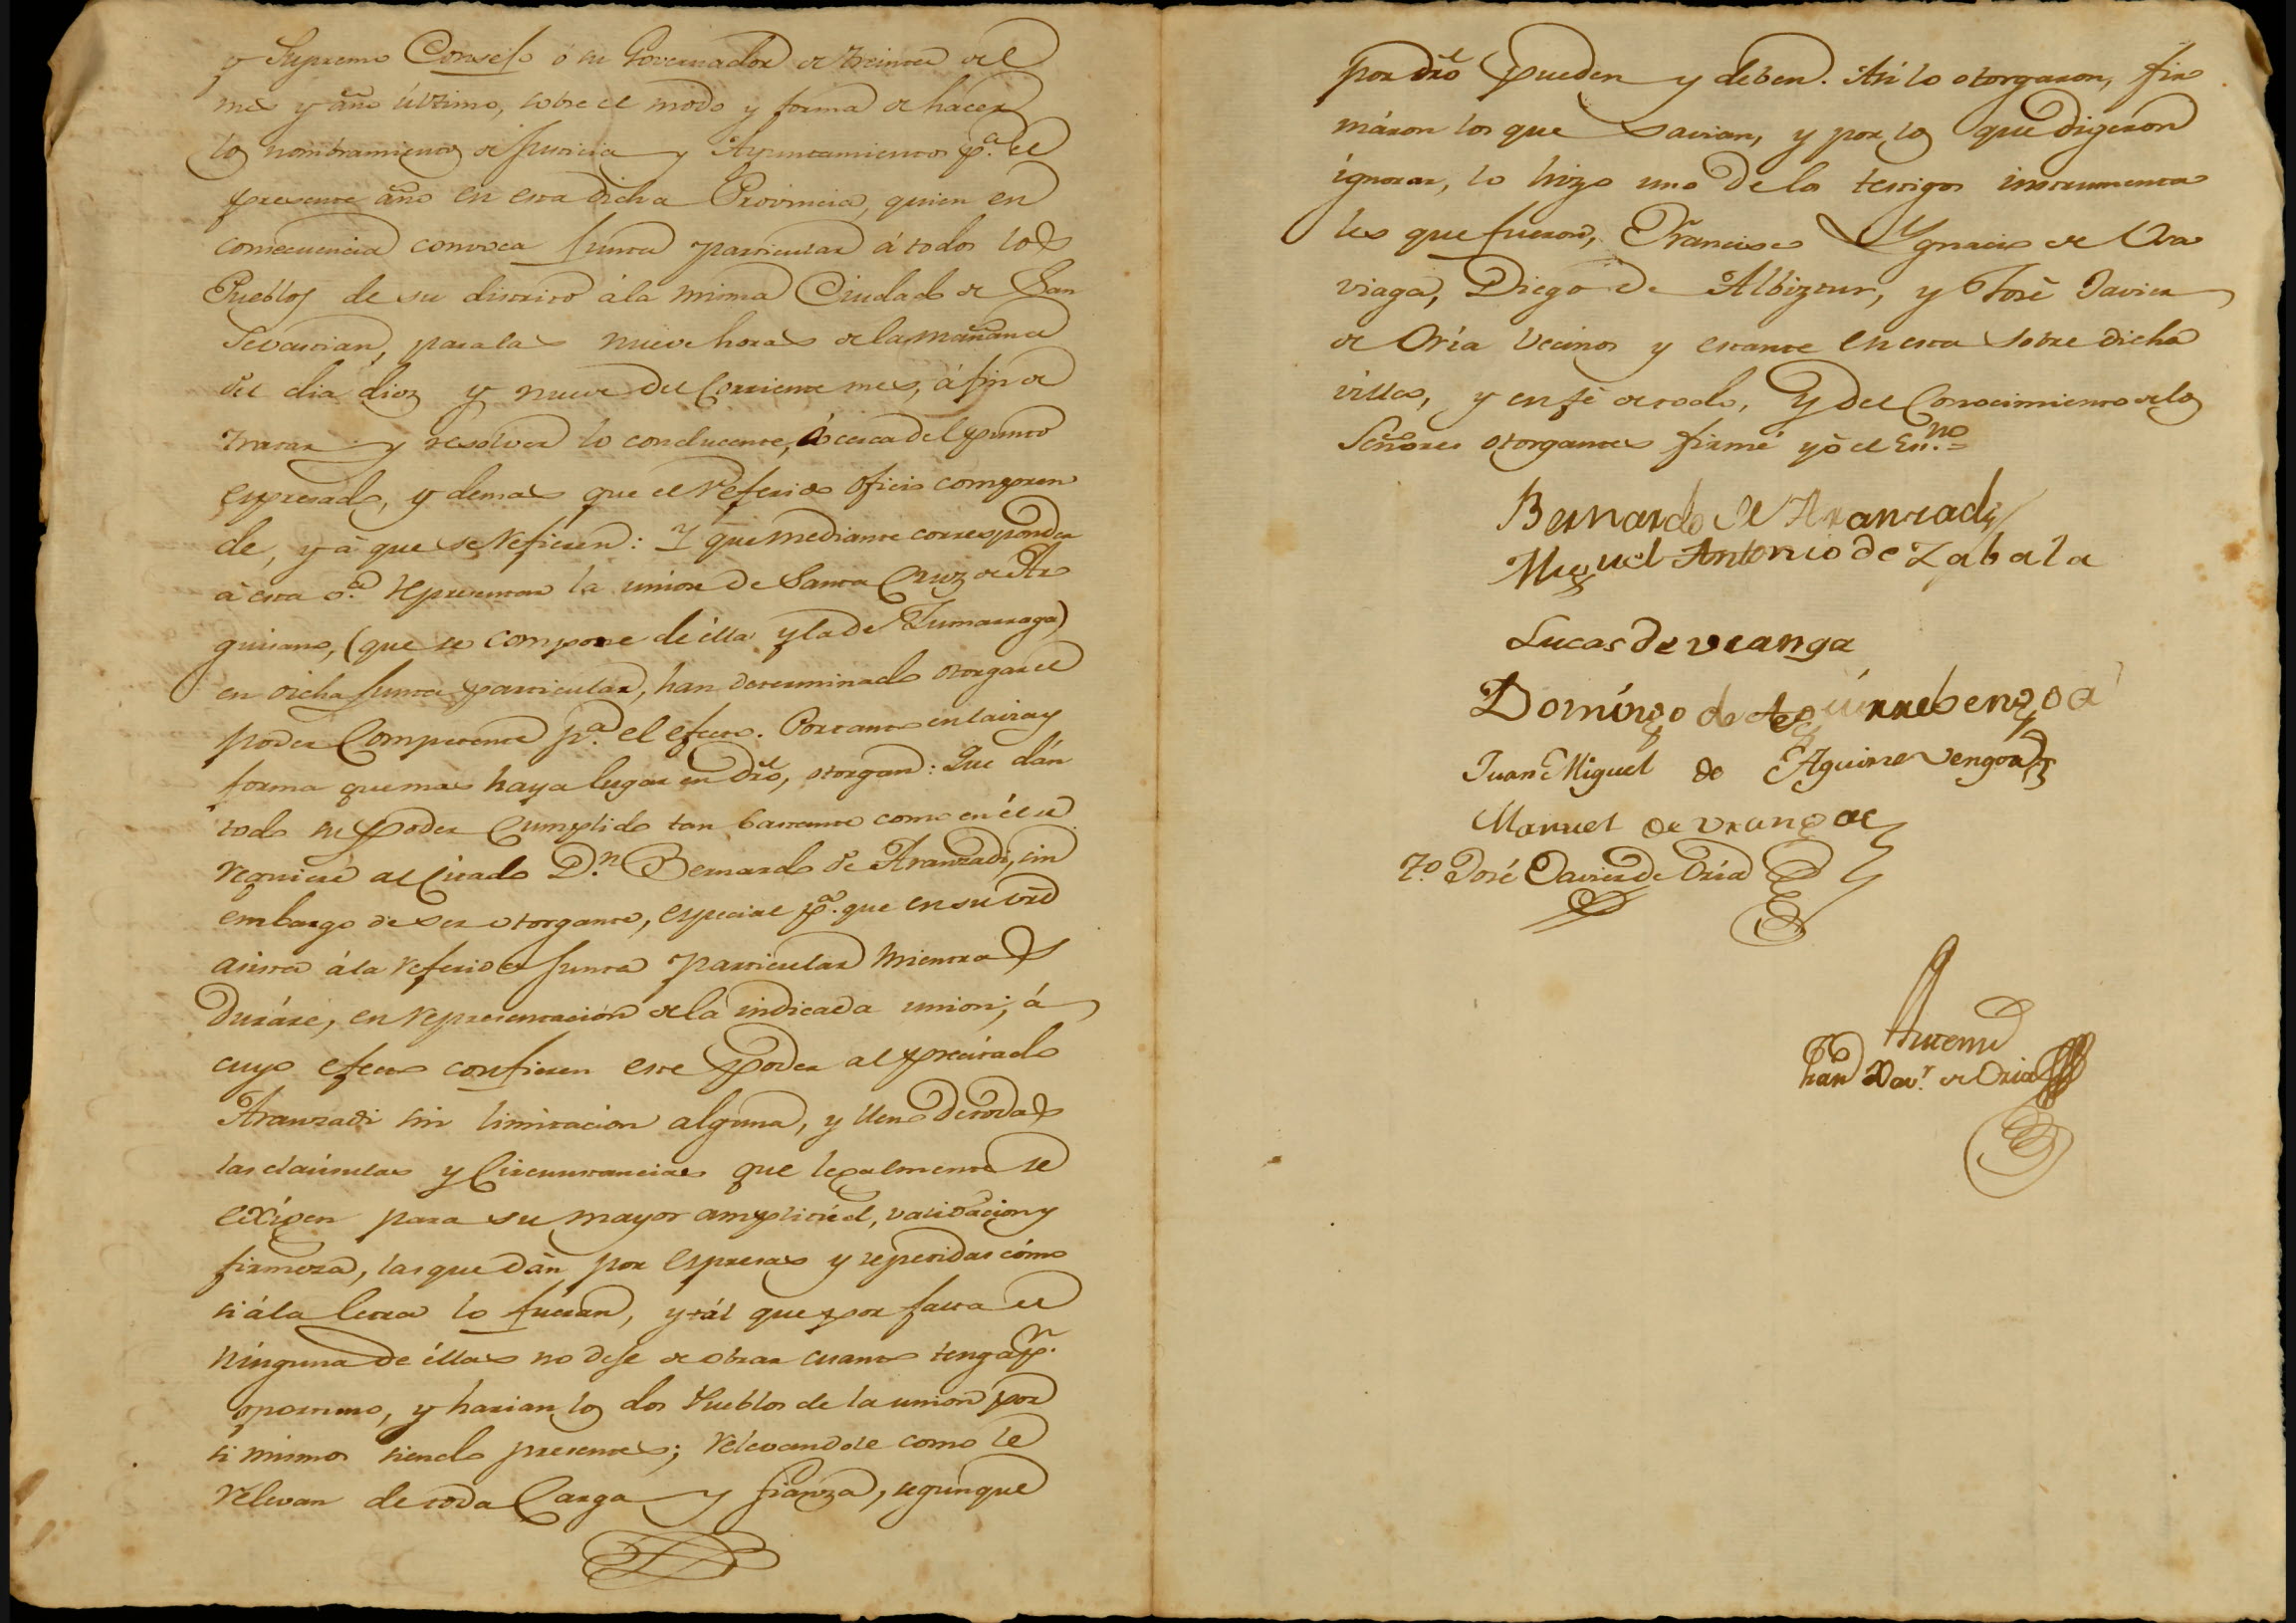 y Supremo Consejo ó su Governador de treinta del
mes y año último, sobre el modo y forma de hacer
los nombramientos de Justicia y Ayuntamientos p.ª el
presente año en esta dicha Provincia, quien en
consecuencia convoca Junta particular á todos los
Pueblos de su distrito á la misma Ciudad de San
Sevastian, para las nueve horas de la mañana
del dia diez y nueve del Corriente mes, á fin de
tratar y resolver lo conducente, á cerca del punto
espresado, y demas que el referido oficio compren
de, y á que se refieren: Y que mediante corresponder
á esta v.ª representar la union de Santa Cruz de Ar
guisano, (que se compone de élla y la de Zumarraga)
en dicha Junta particular, han determinado otorgar el
poder Competente p.ª el efecto. Por tanto en la via y
forma que mas haya lugar en dro, otorgan: Que dán
todo su poder Cumplido tan bastante como en él se
requiere al Citado D.n Bernardo de Aranzadi, sin
embargo de ser otorgante, especial p.ª que en su vrd
asista á la referida Junta particular mientras
duráre, en representación de la indicada union; á
cuyo efecto confieren este poder al precitado
Aranzadi sin limitacion alguna, y lleno de todas
las claúsulas y Circunstancias que legalmente se
exîgen para su mayor amplitúd, validacion y
firmeza, las que dán por espresas y repetidas cómo
si á la letra lo fueran, y tál que por falta de
ninguna de éllas no deje de obrar cuanto tenga p.r
oportuno, y harian los dos Pueblos de la union por
si mismos siendo presentes; relevandole como le
relevan de toda Carga y fianza, segun que
por dro pueden y deben. Asi lo otorgaron, fir
máron los que savian, y por los que digeron
ígnorar, lo hizo uno de los testigos instrumenta
les que fueron, Francisco Ygnacio de Ora
viaga, Diego de Albiztur, y José Javier
de Oría vecinos y estante en esta sobre dicha
villa, y en fé de todo, y del Conocimiento de los
Señores otorgantes firmé yó el Esn.no =
Bernardo de Aranzadi
Miguel Antonio de Zabala
Lucas de Uranga
Domíngo de Aguírrebengoa
Juan Miguel de Aguirrevengoa
Manuel de Uranga
T.o José Javier de Oria
Antemi
Juan Xav.r de Oria